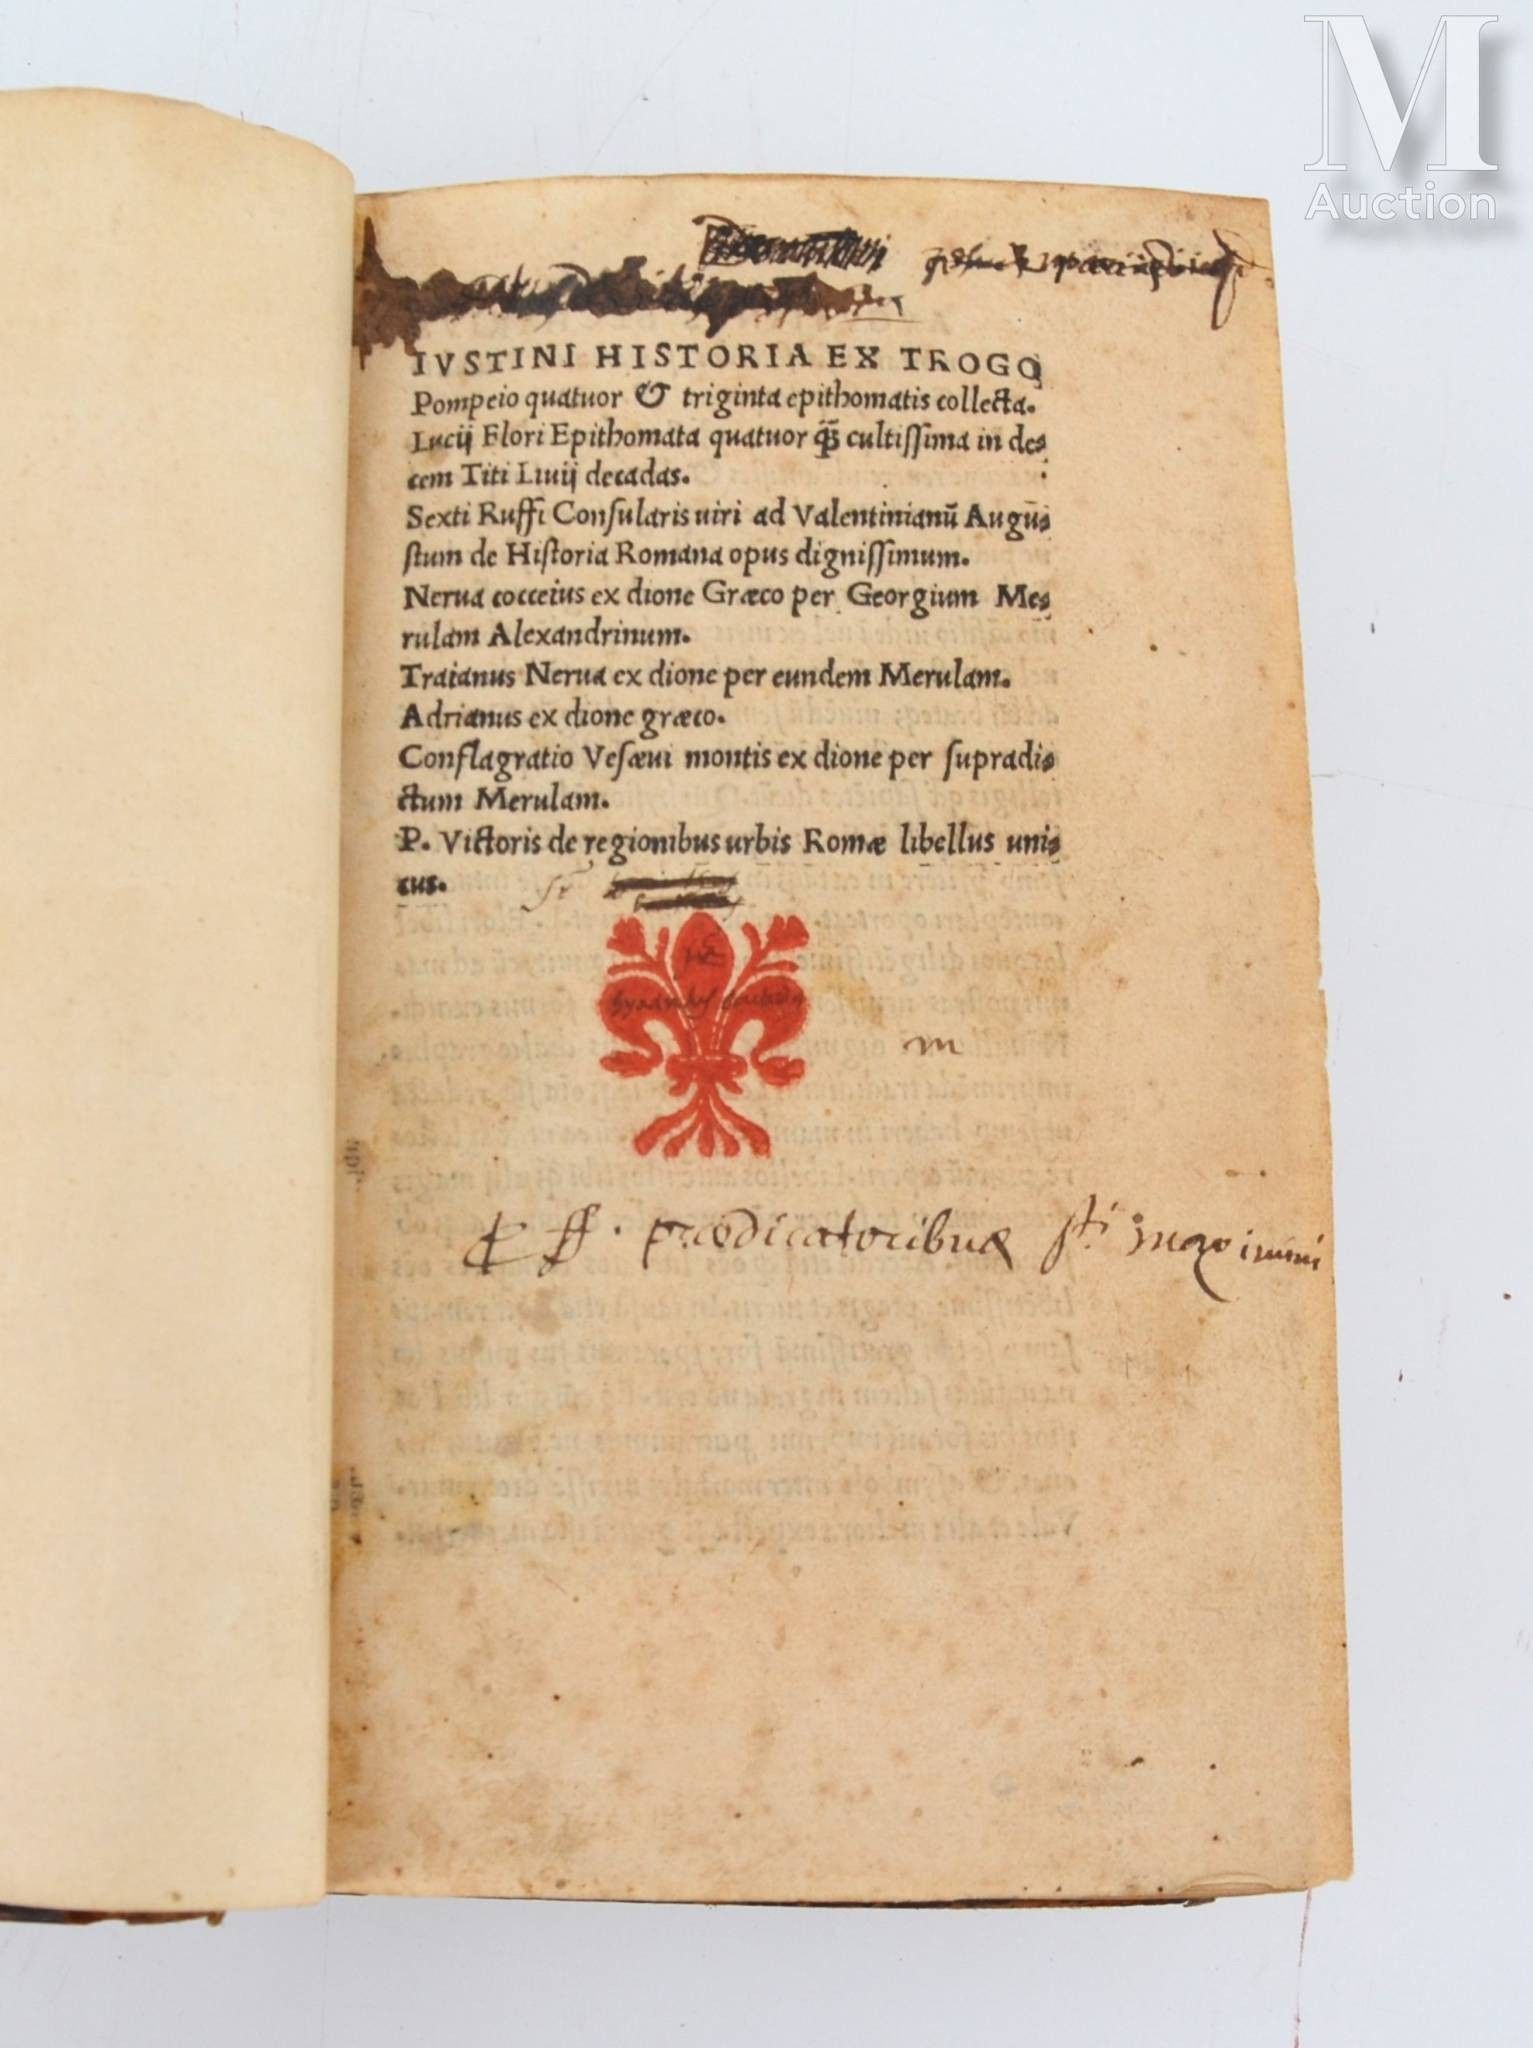 M
Auction
IVSTINI HISTORIA EX TROGO
Pompeio quatuor & triginta epithomatis collecta.
Lucij Flori Epithomata quatuor q̃ꝫ cultiſſima in de⸗
cem Titi Liuij decadas.
Sexti Ruffi Conſularis uiri ad Valentinianũ Augu⸗
ſtum de Hiſtoria Romana opus digniſſimum.
Nerua cocceius ex dione Græco per Georgium Me⸗
rulam Alexandrinum.
Traianus Nerua ex dione per eundem Merulam.
Adrianus ex dione græco.
Conflagratio Veſæui montis ex dione per ſupradi⸗
ctum Merulam.
P. Victoris de regionibus urbis Romæ libellus uni⸗
cus.
m
ff. prædicatoribus sti maximini